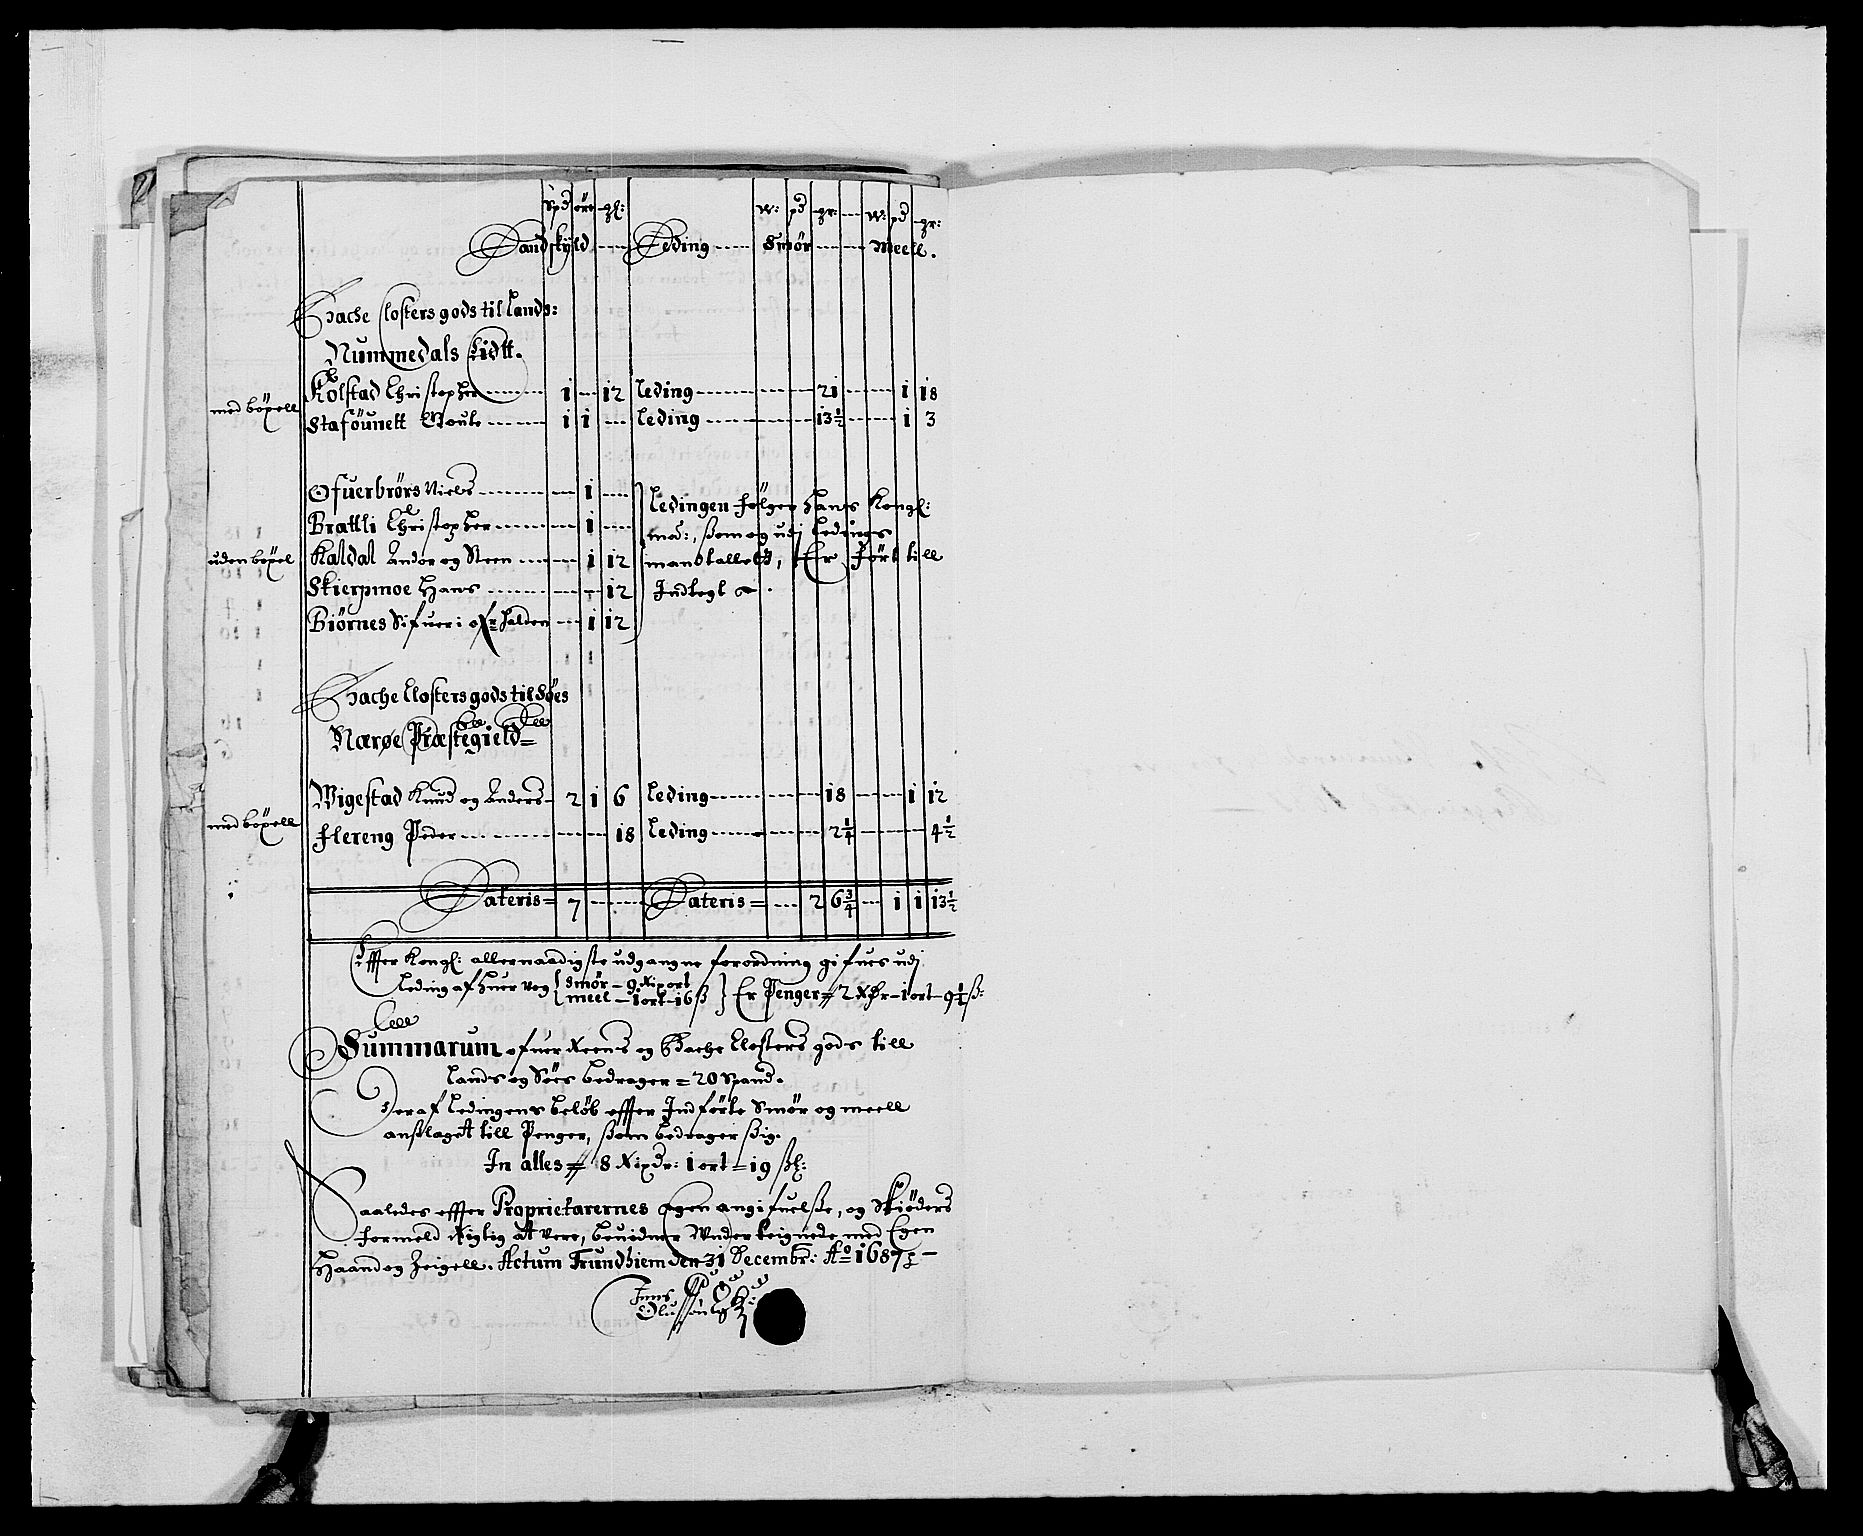 Spd öre gl: w: pd gr: w: pd gr:
Landskyld Leding Smör Meell.
Bache Closters gods til Lands:
Nummedals Lidtt.
med böxell
Kolstad Christopher 1 12 Leding 21 1 18
Staföunett Goute 1 1 Leding 13½ 1 3
Ofuerbrörs Niels 1
Ledingen fölger Hans Kongl:
Brattli Christopher 1
med:, som og udj Ledings
uden böxel Kaldal Andor og Steen 1 12
mandtallett, Er fört till
Skierpmoe Hans 12
Indtegt
Biörnes Sifuer i ofr Halden 1 12
Bache Closters gods til Söes
Nærøe Præstegield
med böxell
Wigestad Knud og Anders 2 1 6 Leding 18 1 12
Flereng Peder 18 Leding 2¼ 4½
Lateris 7 Lateris 2 6¾ 1 1 13½
Effter Kongl: allernaadigste udgangne forordning gifues udj
Leding af huer vog { Smör - 9 ort
meel - 1 ort - 16 ß } Er Penger 2 - 1 ort - 9½ ß:
Summarum ofuer Reens og Bache Closters gods till
Lands og Söes bedrager = 20 Spand.
Deraf Ledingens belöb effter Indförte Smör og meell
anslaget till Penger, som bedrager sig.
In alles 8 Rixdr: 1 ort 19 ßl:
Saaledes effter Proprietarernes Egen angifuelse, og Skiöders
formeld Rigtig at vere, beuidner Underteignede med Egen
Haand og Zeigell. Actum Trundhiem den 31 Decembr: Ao 1687
Jens
Olufsön